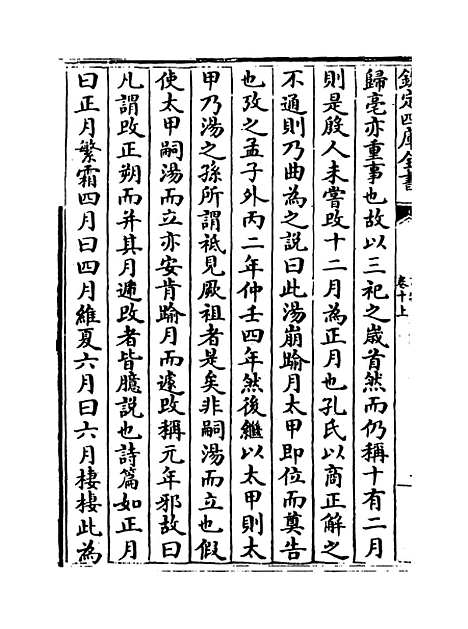 欽定四庫全書
卷十上
歸亳亦重事也故以三祀之歳首然而仍稱十有二月
則是殷人未嘗改十二月為正月也孔氏以商正解之
不通則乃曲為之説曰此湯崩踰月太甲即位而奠告
也攷之孟子外丙二年仲壬四年然後繼以太甲則太
甲乃湯之孫所謂祗見厥祖者是矣非嗣湯而立也假
使太甲嗣湯而立亦安肯踰月而遽改稱元年邪故曰
凡謂改正朔而并其月遞改者皆臆説也詩篇如正月
曰正月繁霜四月曰四月維夏六月曰六月棲棲此為